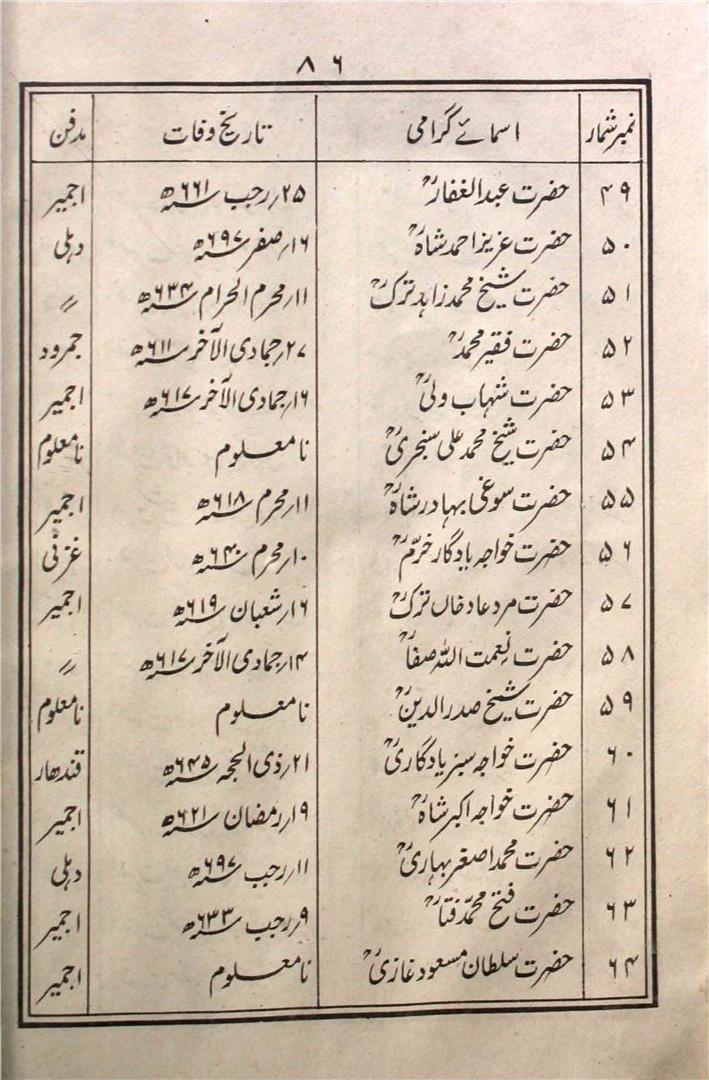 ۸۶
نمبر شمار اسمائے گرامی تاریخ وفات مدفن
۴۹ حضرت عبدالغفارؒ ۲۵؍رجب سنہ ۶۶۱ھ اجمیر
۵۰ حضرت عزیز احمد شاہؒ ۱۶؍صفر سنہ ۶۹۷ھ دہلی
۵۱ حضرت شیخ محمد زاہد ترکؒ ۱۱؍محرم الحرام سنہ ۶۳۴ھ 〃
۵۲ حضرت فقیر محمدؒ ۲۷؍جمادی الآخر سنہ ۶۱۱ھ جمرود
۵۳ حضرت شہاب ولیؒ ۱۶؍جمادی الآخر سنہ ۶۱۷ھ اجمیر
۵۴ حضرت شیخ محمد علی سنجریؒ نامعلوم نامعلوم
۵۵ حضرت سوغی بہادر شاہؒ ۱۱؍محرم سنہ ۶۱۸ھ اجمیر
۵۶ حضرت خواجہ یادگار خرّمؒ ۱۰؍محرم سنہ ۶۴۰ھ غزنی
۵۷ حضرت مرد عاد خاں ترکؒ ۱۶؍شعبان سنہ ۶۱۹ھ اجمیر
۵۸ حضرت نعمت اللہ صفاؒ ۱۴؍جمادی الآخر سنہ ۶۱۷ھ 〃
۵۹ حضرت شیخ صدرالدینؒ نامعلوم نامعلوم
۶۰ حضرت خواجہ سبز یادگاریؒ ۲۱؍ذی الحجہ سنہ ۶۴۵ھ قندھار
۶۱ حضرت خواجہ اکبر شاہؒ ۱۹؍رمضان سنہ ۶۲۱ھ اجمیر
۶۲ حضرت محمد اصغر بہاریؒ ۱۱؍رجب سنہ ۶۹۷ھ دہلی
۶۳ حضرت فتح محمّد فتاؒ ۹؍رجب سنہ ۶۳۳ھ اجمیر
۶۴ حضرت سلطان مسعود غازیؒ نامعلوم اجمیر